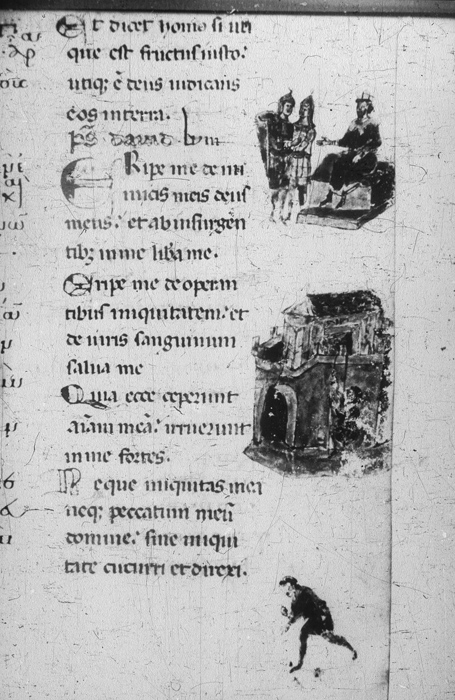 Et dicet homo si uti
que est fructus iusto:
utiq; e deus iudicans
eos in terra.
ps dauid lviii
Eripe me de ini
micis meis deus
meus: et ab insurgen
tib; in me libera me.
Eripe me de operan
tibus iniquitatem: et
de uiris sanguinum
salua me
Quia ecce ceperunt
aiam mea: irruerunt
in me fortes.
Neque iniquitas mea
neq; peccatum meu
domine: sine iniqui
tate cucurri et direxi.